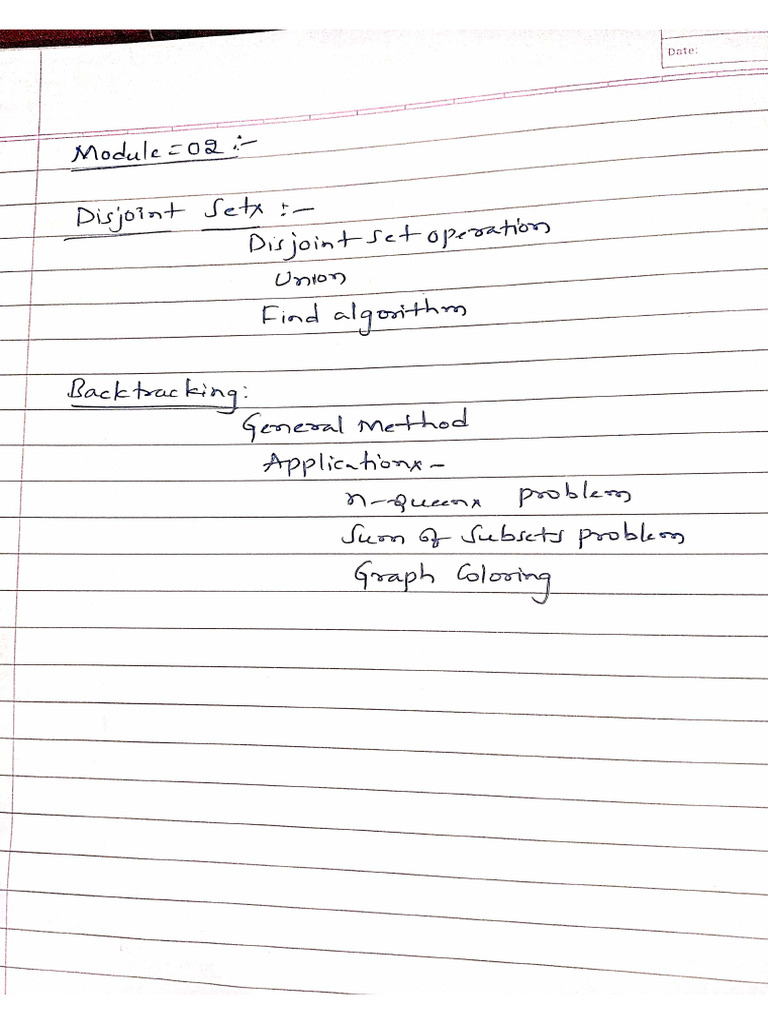 Date:
Module = 02 :-
Disjoint Sets :-
Disjoint set operation
Union
Find algorithm
Backtracking:
General Method
Applications -
n-queens problem
Sum of Subsets problem
Graph Coloring